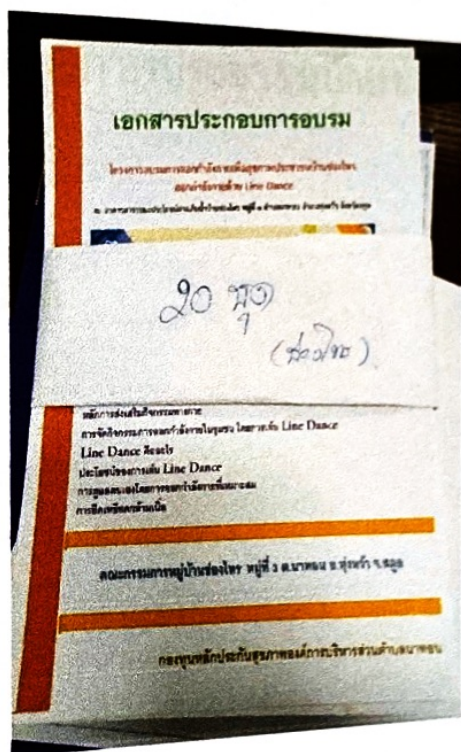 เอกสารประกอบการอบรม
โครงการอบรมการออกกำลังกายเพื่อสุขภาพประชาชนบ้านช่องไทร
ออกกำลังกายด้วย Line Dance
20 ชุด
(ช่องไทร)
หลักการส่งเสริมกิจกรรมทางกาย
การจัดกิจกรรมการออกกำลังกายในชุมชน โดยการเต้น Line Dance
Line Dance คืออะไร
ประโยชน์ของการเต้น Line Dance
การดูแลตนเองโดยการออกกำลังกายที่เหมาะสม
การยืดเหยียดกล้ามเนื้อ
คณะกรรมการหมู่บ้านช่องไทร หมู่ที่ 3 ต.นาทอน อ.ทุ่งหว้า จ.สตูล
กองทุนหลักประกันสุขภาพองค์การบริหารส่วนตำบลนาทอน